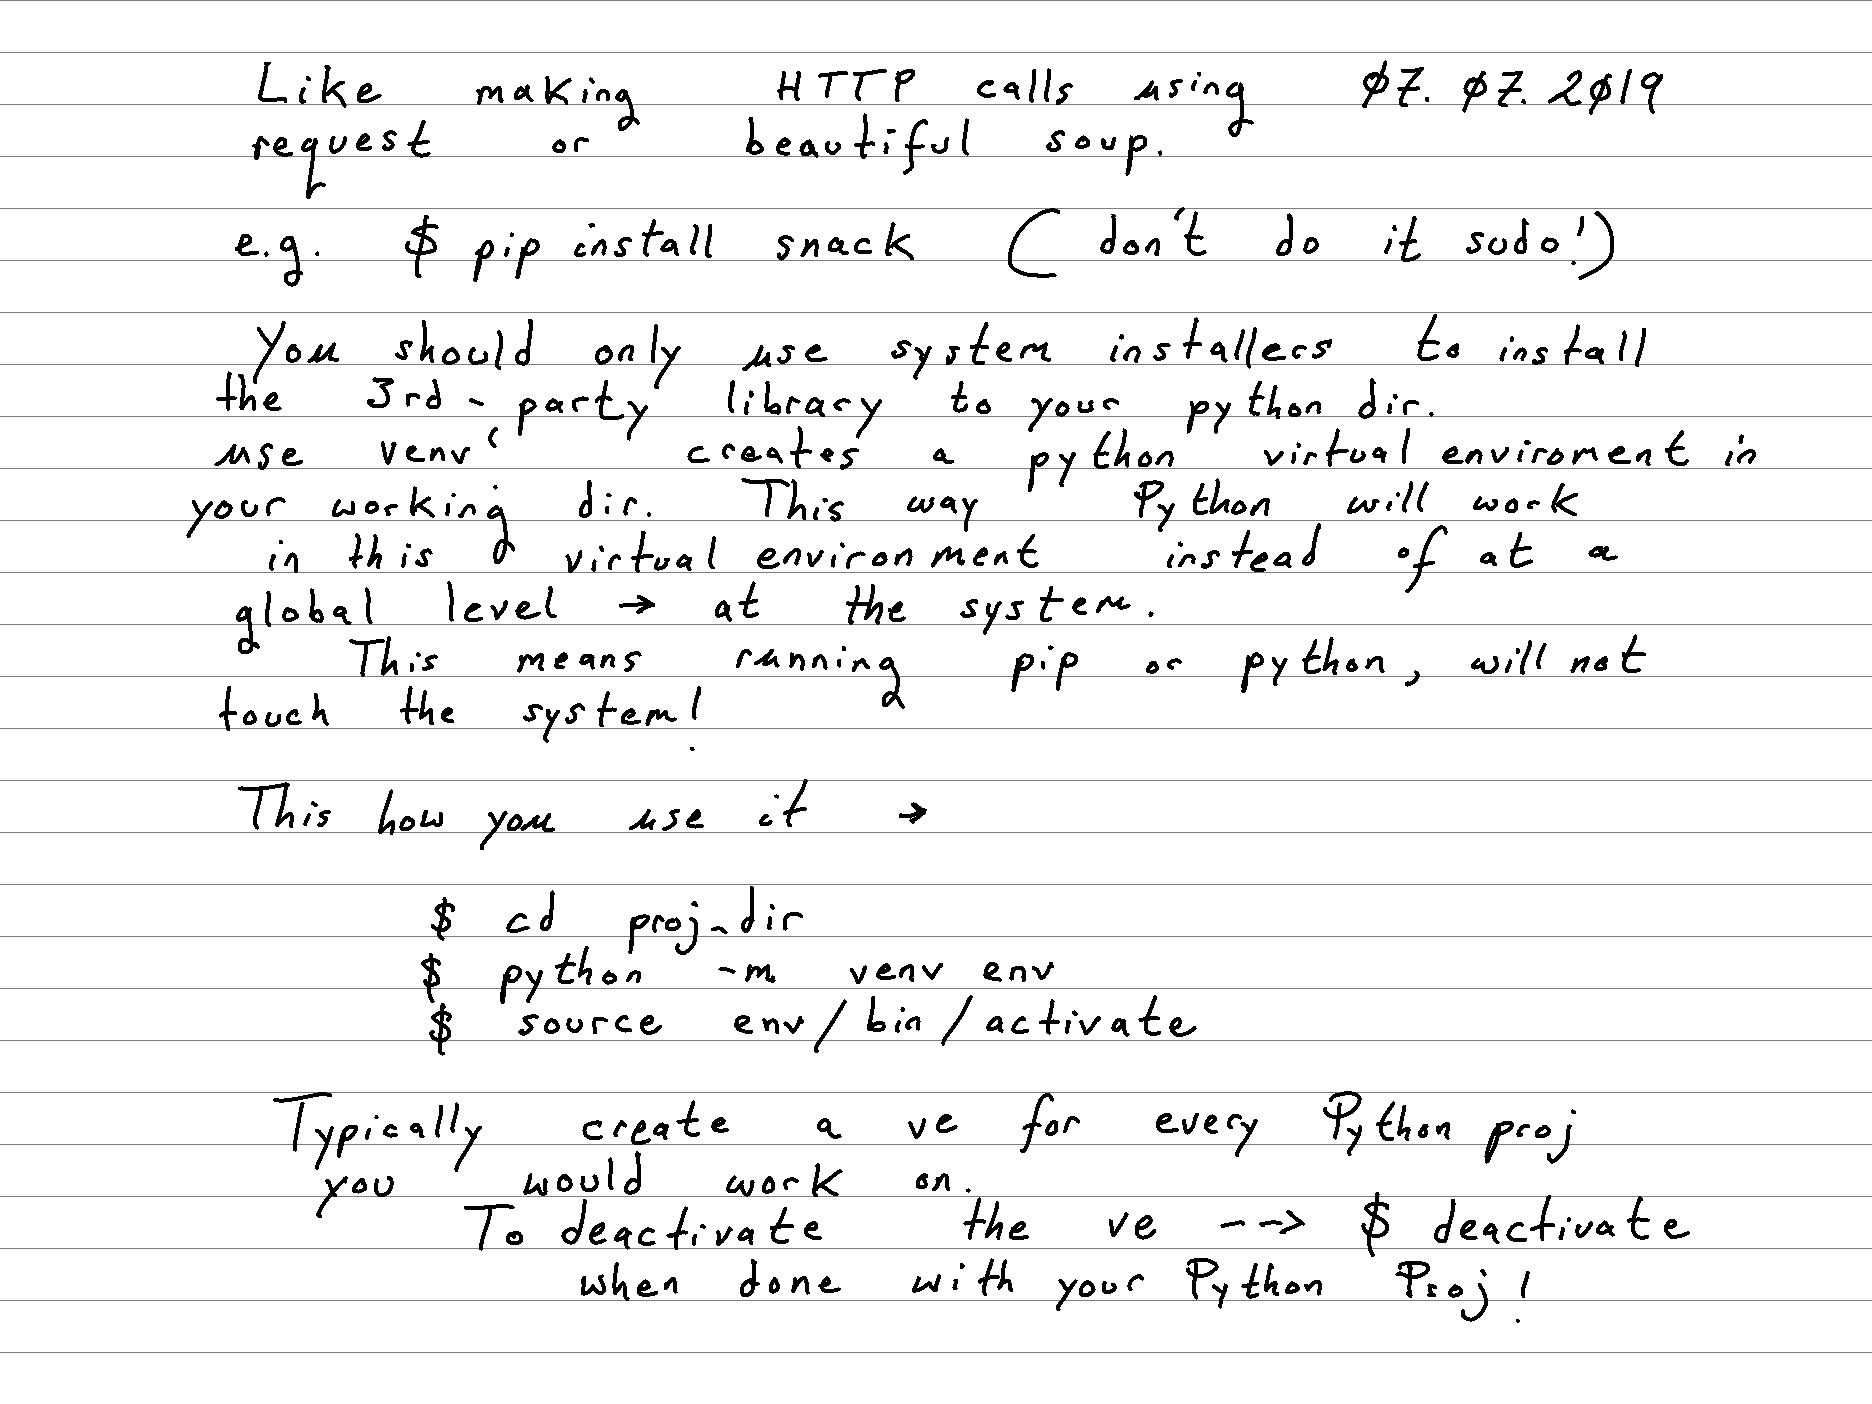 Like making HTTP calls using 07. 07. 2019
request or beautiful soup.
e.g. $ pip install snack (don't do it sudo!)
You should only use system installers to install
the 3rd-party library to your python dir.
use venv' creates a python virtual enviroment in
your working dir. This way Python will work
in this virtual environment instead of at a
global level → at the system.
This means running pip or python, will not
touch the system!
This how you use it →
$ cd proj_dir
$ python -m venv env
$ source env/bin/activate
Typically create a ve for every Python proj
you would work on.
To deactivate the ve --> $ deactivate
when done with your Python Proj!